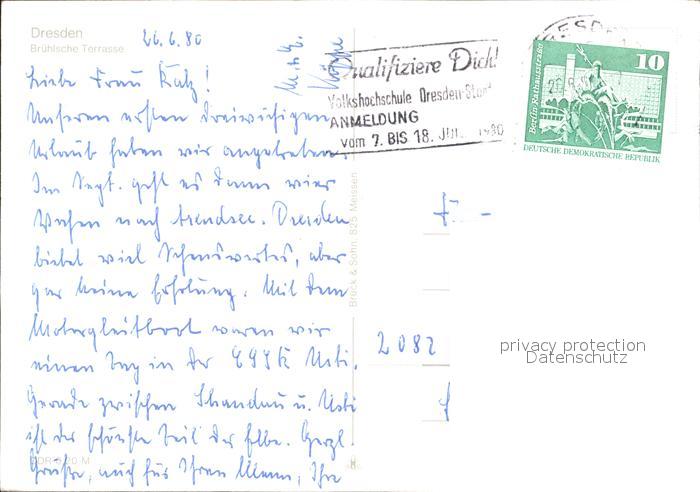 Dresden
Brühlsche Terrasse
26.6.80
Liebe Frau Katz!
Unseren ersten dreiwöchigen
Urlaub haben wir angetreten.
Im Sept. geht es dann vier
Wochen nach Arendsee. Dresden
bietet viel Sehenswertes, aber
gar keine Erholung. Mit dem
Motorgleitboot waren wir
einen Tag in der ČSSR Usti.
Gerade zwischen Schandau u. Usti
ist der schönste Teil der Elbe. Herzl.
Grüße, auch für Ihren Mann, Ihre
M. u. E.
Brück & Sohn, 825 Meissen
Qualifiziere Dich!
Volkshochschule Dresden-Stadt
ANMELDUNG
vom 7. BIS 18. JULI 1980
DRESDEN
Berlin, Rathausstraße
10
DEUTSCHE DEMOKRATISCHE REPUBLIK
F
2082
privacy protection
Datenschutz
M